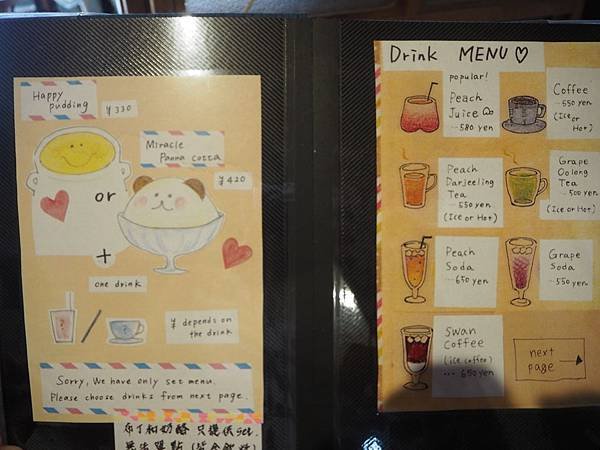 Happy
pudding
¥330
Miracle
Panna cotta
¥420
or
+
one drink
¥ depends on
the drink
Sorry, We have only set menu.
Please choose drinks from next page.
布丁和奶酪 只提供set.
無法單點
Drink MENU ♡
popular!
Peach
Juice
...580 yen
Coffee
...550 yen
(Ice or
Hot)
Peach
Darjeeling
Tea
...550 yen
(Ice or Hot)
Grape
Oolong
Tea
...500 yen
(Ice or Hot)
Peach
Soda
...650 yen
Grape
Soda
...550 yen
Swan
Coffee
(ice coffee)
... 650 yen
next
page →